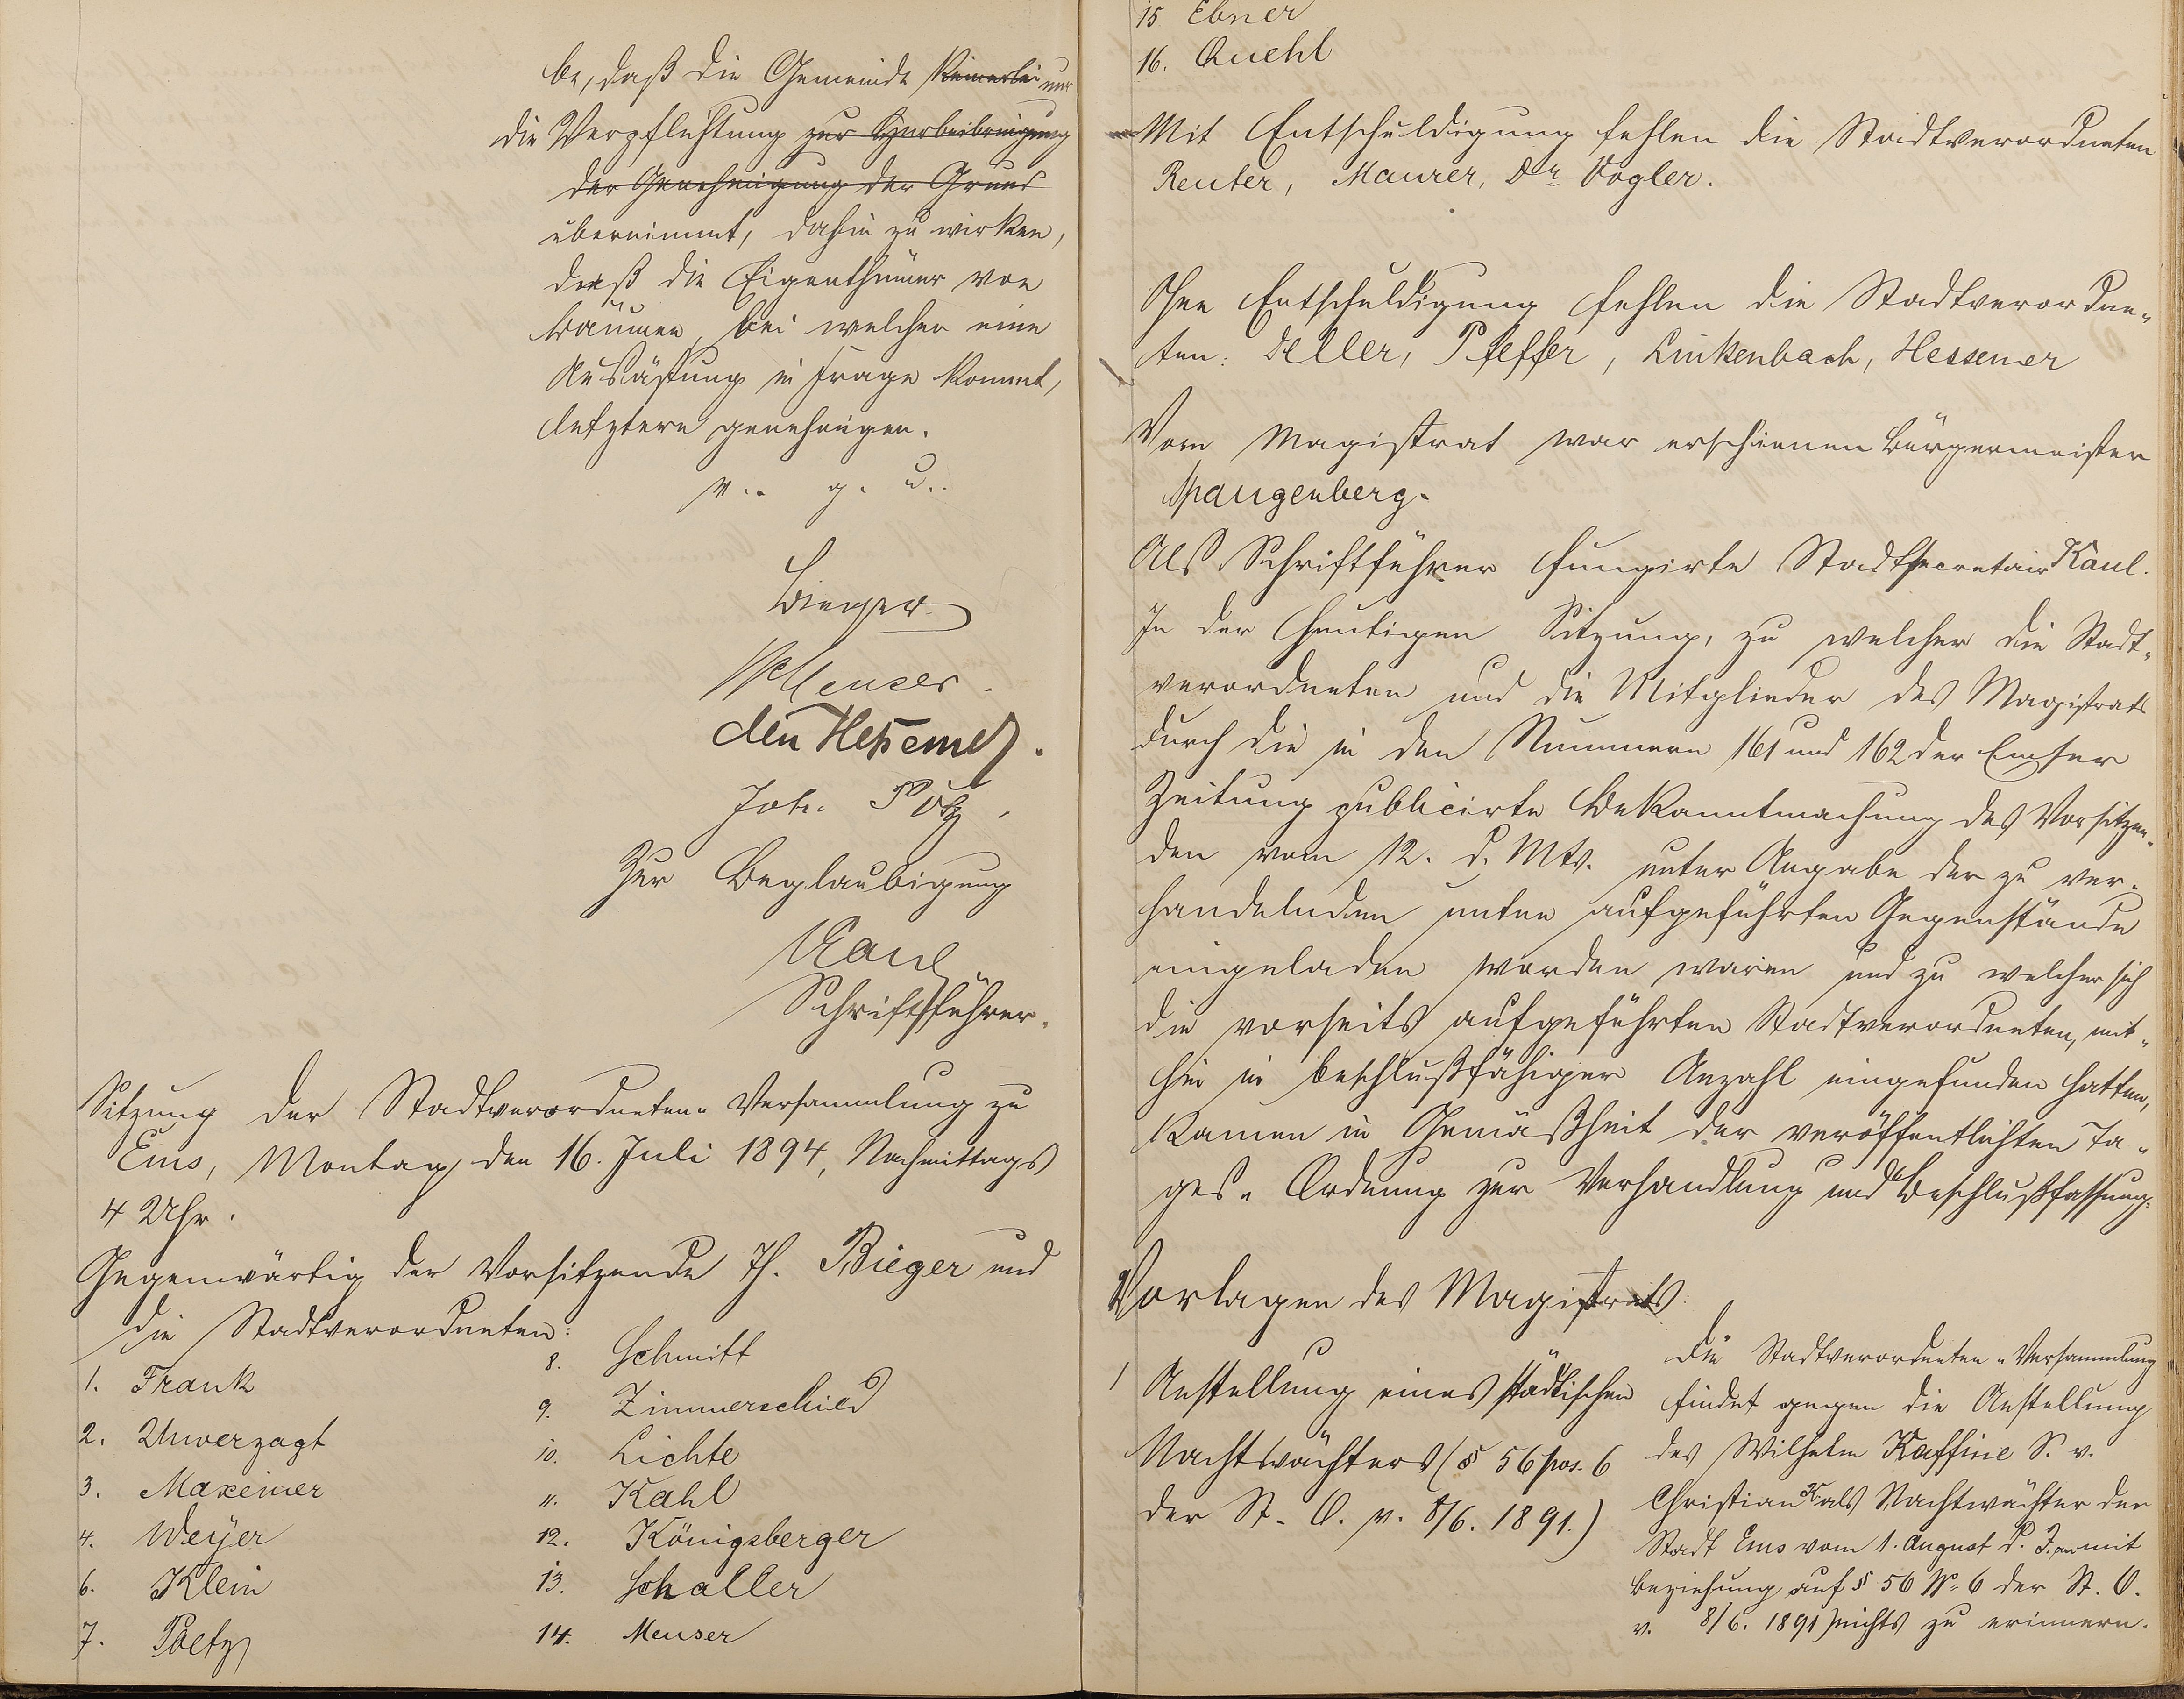 be, daß die Gemeinde keinerlei nur
die Verpflichtung zur Herbeibringung
der Genehmigung der Grund
übernimmt, dahin zu wirken,
daß die Eigenthümer von
Bäumen, bei welchen eine
Ausästung in Frage kommt,
letztere genehmigen.
v. g. u.
Bieger
Meuser.
den Heßemer.
Joh. Pötz.
Zur Beglaubigung
Kaul
Schriftführer.
Sitzung der Stadtverordneten-Versammlung zu
Ems, Montag den 16. Juli 1894, Nachmittags
4 Uhr.
Gegenwärtig der Vorsitzende Th. Bieger und
die Stadtverordneten:
1. Frank
2. Unverzagt
3. Maxeiner
4. Weyer
6. Klein
7. Poetz
8. Schmitt
9. Zimmerschied
10. Lichte
11. Kahl
12. Königsberger
13. Schaller
14. Meuser
15 Ebner
16. Quehl
Mit Entschuldigung fehlen die Stadtverordneten
Reuter, Maurer, Dr Vogler.
Ohne Entschuldigung fehlen die Stadtverordne-
ten: Deller, Pfeffer, Linkenbach, Hessemer
Vom Magistrat war erschienen Bürgermeister
Spangenberg.
Als Schriftführer fungirte Stadtsecretair Kaul.
In der heutigen Sitzung, zu welcher die Stadt-
verordneten und die Mitglieder des Magistrats
durch die in den Nummern 161 und 162 der Emser
Zeitung publicirte Bekanntmachung des Vorsitzen-
den vom 12. d. Mts. unter Angabe der zu ver-
handelnden unten aufgeführten Gegenstände
eingeladen worden waren und zu welcher sich
die vorseits aufgeführten Stadtverordneten, mit-
hin in beschlußfähiger Anzahl eingefunden hatten,
kamen in Gemäßheit der veröffentlichten Ta-
ges-Ordnung zur Verhandlung und Beschlußfassung:
Vorlagen des Magistrats:
1 Anstellung eines städtischen
Nachtwächters (§ 56 pos. 6
der St. O. v. 8/6. 1891.)
Die Stadtverordneten-Versammlung
findet gegen die Anstellung
des Wilhelm Kaffine S. v.
Christian K als Nachtwächter der
Stadt Ems vom 1. August d. J. an mit
Beziehung auf § 56 No 6 der St. O.
v. 8/6. 1891) nichts zu erinnern.